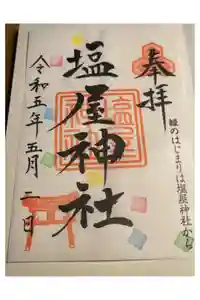 奉拝
縁のはじまりは塩屋神社から
塩屋神社
令和五年五月二日